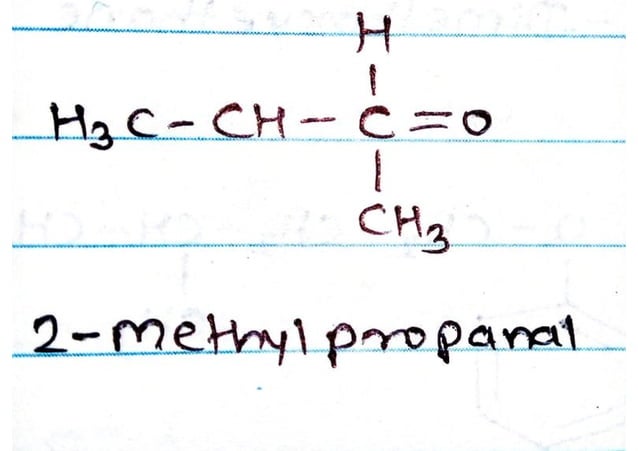 H
|
H3C-CH-C=O
|
CH3
2-methyl propanal